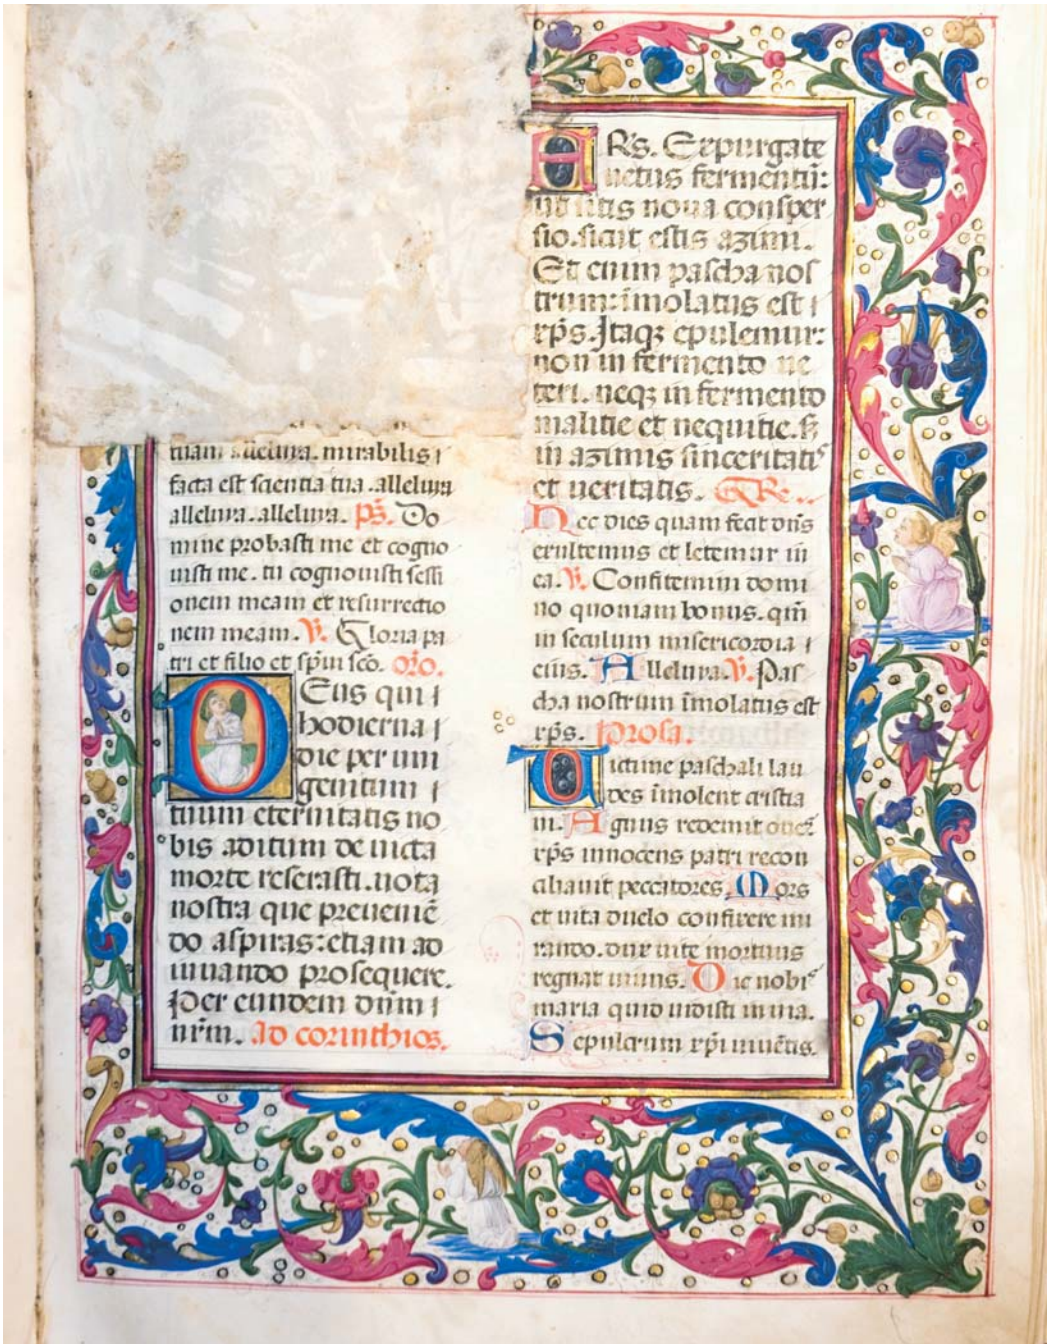 tuam alleluya. mirabilis
facta est scientia tua. alleluya
alleluya. alleluya. ps̄. Do
mine probasti me et cogno
uisti me. tu cognouisti sessi
onem meam et resurrectio
nem meam. V. Gloria pa
tri et filio et sp̄ui scō. Or̄o.
DEus qui
hodierna
die per uni
genitum
tuum eternitatis no
bis aditum deuicta
morte reserasti. uota
nostra que preueniē
do aspiras: etiam ad
iuuando prosequere.
Per eundem dn̄m
nr̄m. ad corinthios.
FRs̄. Expurgate
uetus fermentū:
ut sitis noua consper
sio. sicut estis azimi.
Et enim pascha nos
trum: īmolatus est
xp̄s. Itaqꝫ epulemur:
non in fermento ue
teri. neqꝫ in fermento
malitie et nequitie. sꝫ
in azimis sinceritatis
et ueritatis. GR̄.
Hec dies quam fecit dn̄s
exultemus et letemur in
ea. V. Confitemini domi
no quoniam bonus. qm̄
in seculum misericordia
eius. Alleluya. V. Pas
cha nostrum īmolatus est
xp̄s. Prosa.
Uictime paschali lau
des īmolent cristia
ni. Agnus redemit oues
xp̄s innocens patri recon
ciliauit peccatores. Mors
et uita duelo conflixere mi
rando. dux uite mortuus
regnat uiuus. Dic nobis
maria quid uidisti in uia.
Sepulcrum xp̄i uiuētis.